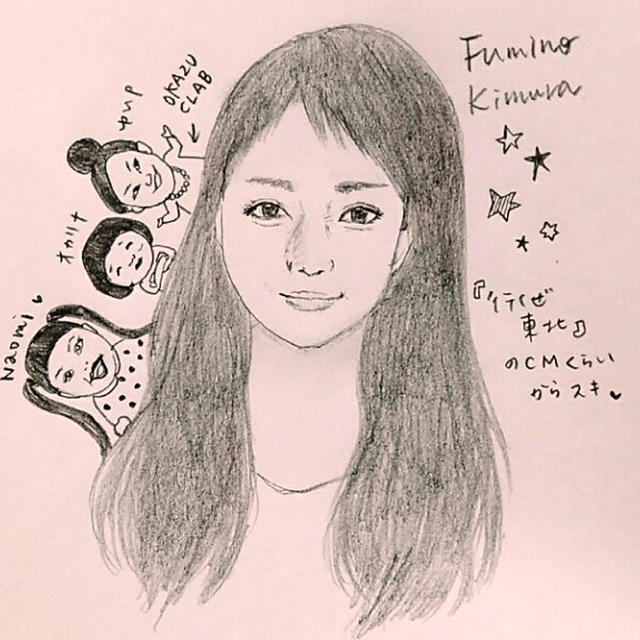 Fumino
Kimura
OKAZU
CLAB
ゆuP
オカリナ
Naomi
『行くぜ
東北』
のCMくらい
からスキ